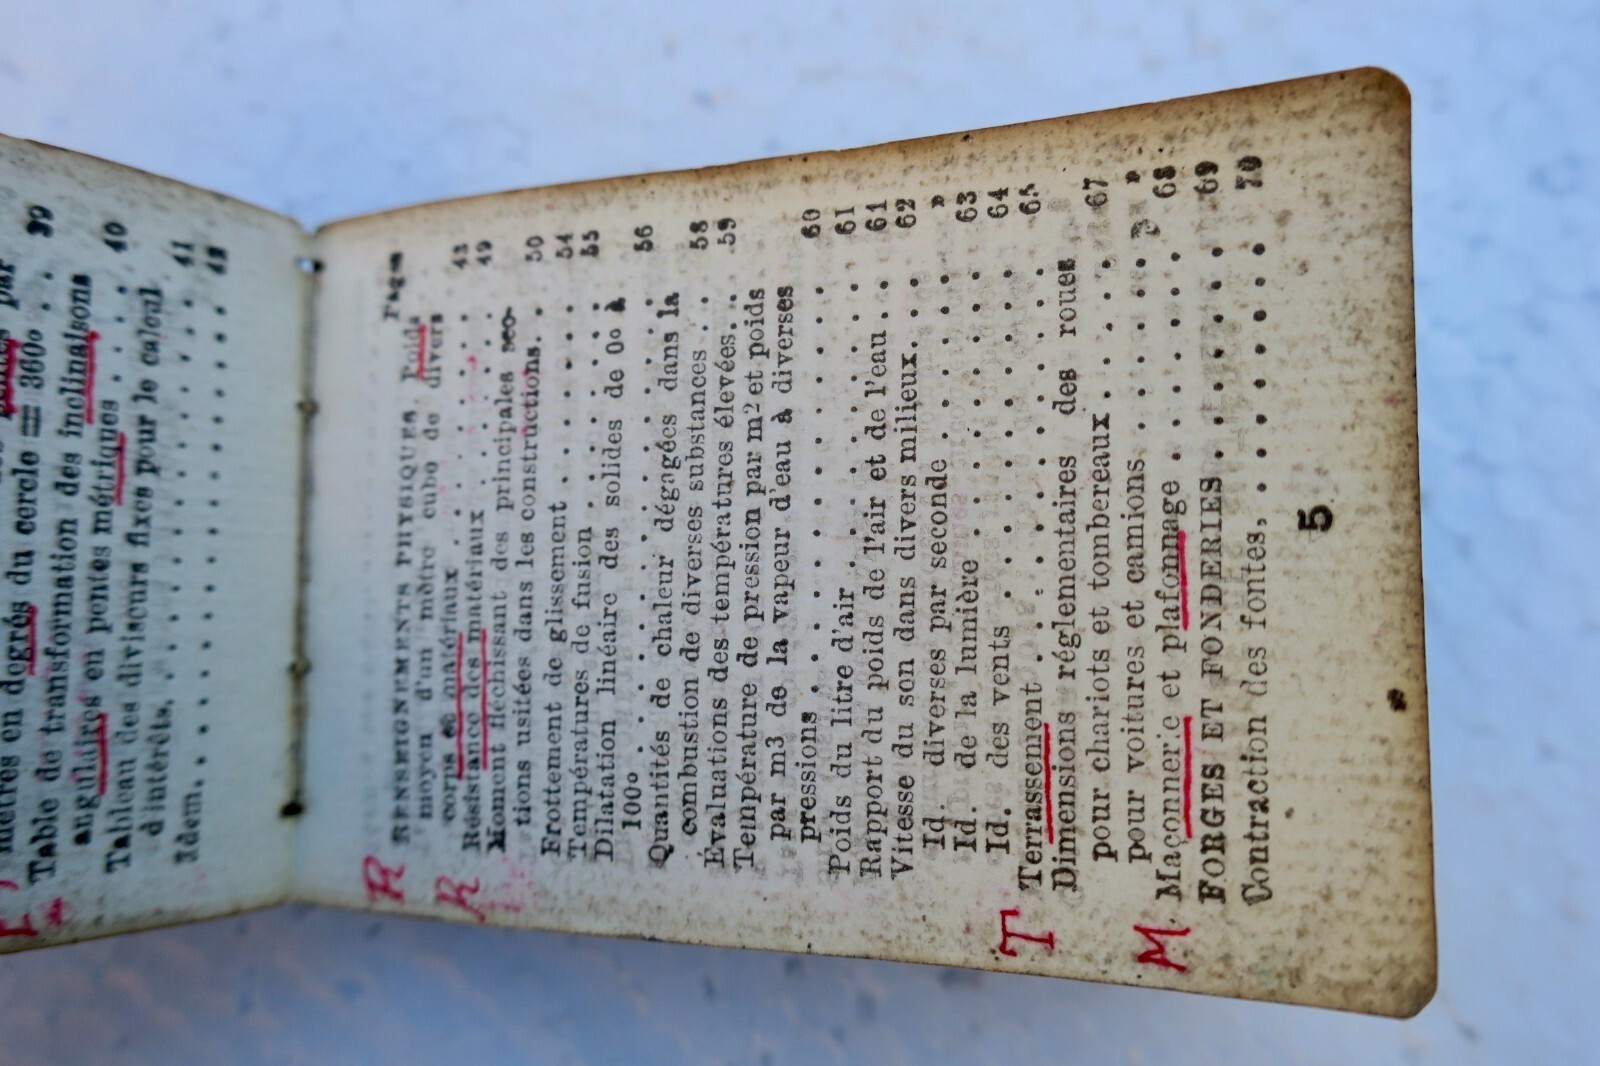 mètres en degrés du cercle = 360° . . 39
Table de transformation des inclinaisons
angulaires en pentes métriques . . . . 40
Tableau des diviseurs fixes pour le calcul
d'intérêts. . . . . . . . . . . . . 41
Idem. . . . . . . . . . . . . . . 42
Pages
R RENSEIGNEMENTS PHYSIQUES. Poids
moyen d'un mètre cube de divers
corps et matériaux . . . . . . . 43
R Résistance des matériaux . . . . . . 49
Moment fléchissant des principales sec-
tions usitées dans les constructions. . 50
Frottement de glissement . . . . . . 54
Températures de fusion . . . . . . . 55
Dilatation linéaire des solides de 0° à
100° . . . . . . . . . . . . . . 56
Quantités de chaleur dégagées dans la
combustion de diverses substances . . 58
Évaluations des températures élevées. . . 59
Température de pression par m2 et poids
par m3 de la vapeur d'eau à diverses
pressions . . . . . . . . . . . . 60
Poids du litre d'air . . . . . . . . . 61
Rapport du poids de l'air et de l'eau . . . 61
Vitesse du son dans divers milieux. . . . 62
Id. diverses par seconde . . . . . . »
Id. de la lumière . . . . . . . . . 63
Id. des vents . . . . . . . . . . 64
T Terrassement . . . . . . . . . . . 65
Dimensions réglementaires des roues
pour chariots et tombereaux . . . . . 67
pour voitures et camions . . . . . . » »
M. Maçonnerie et plafonnage . . . . . . 68
FORGES ET FONDERIES . . . . . . . 69
Contraction des fontes, . . . . . . . . 70
5